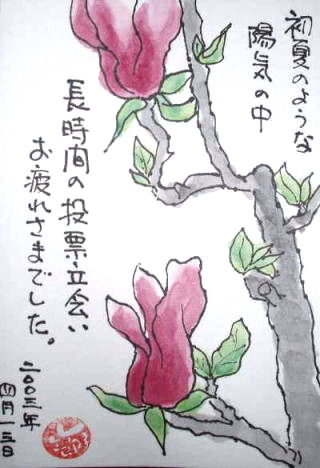 初夏のような
陽気の中
長時間の投票立会い
お疲れさまでした。
二〇〇三年
四月一三日